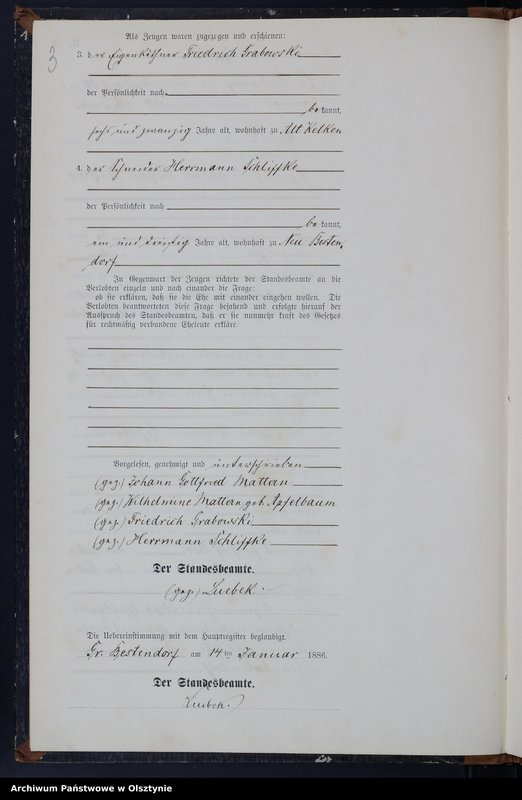 3
Als Zeugen waren zugezogen und erschienen:
3. der Eigenkäthner Friedrich Grabowski
der Persönlichkeit nach
bekannt,
sechs und zwanzig Jahre alt, wohnhaft zu Alt Kelken
4. der Schneider Herrmann Schliffke
der Persönlichkeit nach
bekannt,
ein und dreißig Jahre alt, wohnhaft zu Neu Besten,
dorf
In Gegenwart der Zeugen richtete der Standesbeamte an die
Verlobten einzeln und nach einander die Frage:
ob sie erklären, daß sie die Ehe mit einander eingehen wollen. Die
Verlobten beantworteten diese Frage bejahend und erfolgte hierauf der
Ausspruch des Standesbeamten, daß er sie nunmehr kraft des Gesetzes
für rechtmäßig verbundene Eheleute erkläre.
Vorgelesen, genehmigt und unterschrieben
(gez.) Johann Gottfried Mattern
(gez.) Wilhelmine Mattern geb. Apfelbaum
(gez.) Friedrich Grabowski
(gez.) Herrmann Schliffke
Der Standesbeamte.
(gez.) Luebek.
Die Uebereinstimmung mit dem Hauptregister beglaubigt.
Gr. Bestendorf am 14ten Januar 1886.
Der Standesbeamte.
Luebek.
Archiwum Państwowe w Olsztynie